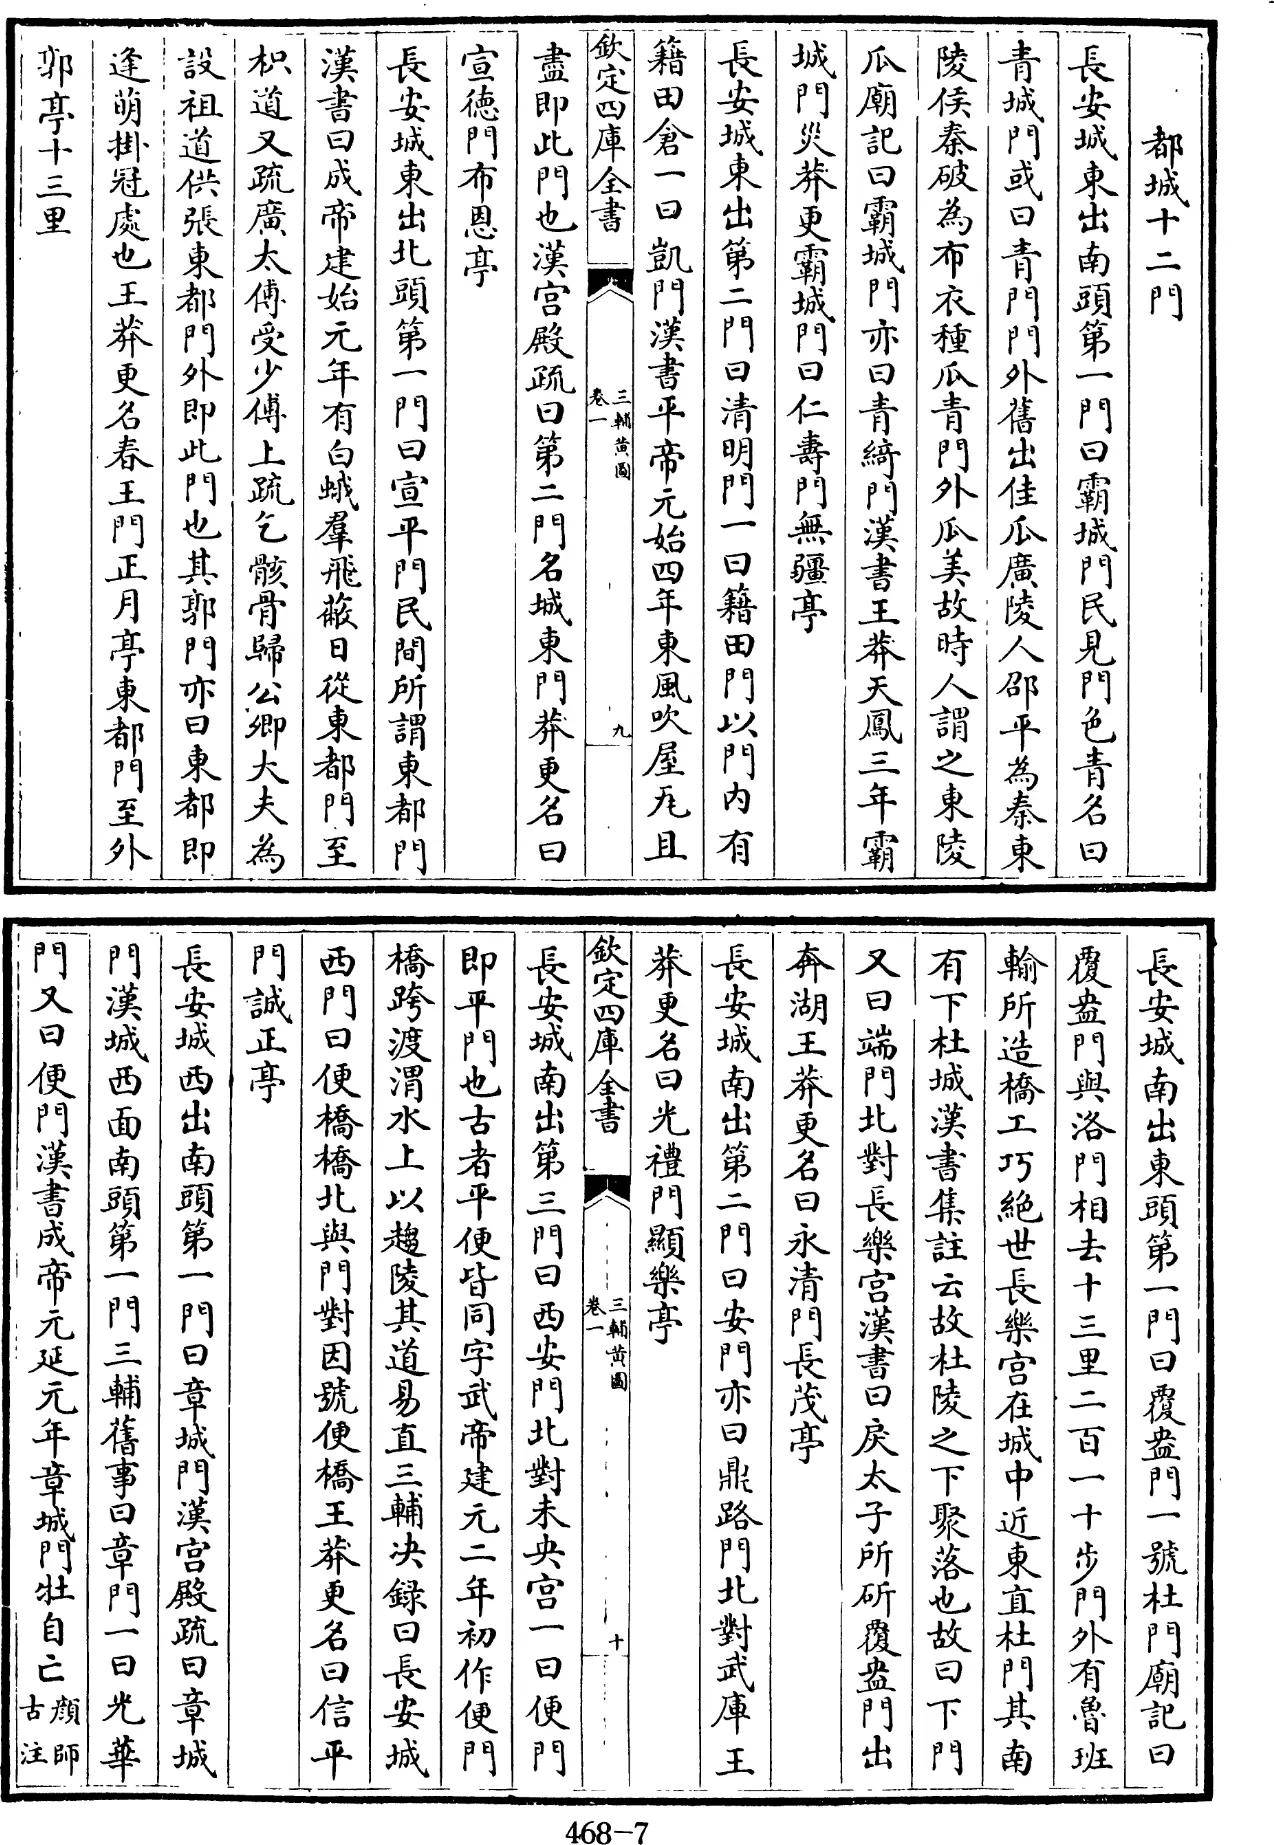 都城十二門
長安城東出南頭第一門曰霸城門民見門色青名曰
青城門或曰青門門外舊出佳瓜廣陵人邵平為秦東
陵侯秦破為布衣種瓜青門外瓜美故時人謂之東陵
瓜廟記曰霸城門亦曰青綺門漢書王莽天鳳三年霸
城門災莽更霸城門曰仁壽門無疆亭
長安城東出第二門曰清明門一曰籍田門以門内有
籍田倉一曰凱門漢書平帝元始四年東風吹屋瓦且
欽定四庫全書
三輔黄圖
卷一
九
盡即此門也漢宫殿疏曰第二門名城東門莽更名曰
宣德門布恩亭
長安城東出北頭第一門曰宣平門民間所謂東都門
漢書曰成帝建始元年有白蛾羣飛蔽日從東都門至
枳道又疏廣太傅受少傅上疏乞骸骨歸公卿大夫為
設祖道供張東都門外即此門也其郭門亦曰東都即
逢萌掛冠處也王莽更名春王門正月亭東都門至外
郭亭十三里
長安城南出東頭第一門曰覆盎門一號杜門廟記曰
覆盎門與洛門相去十三里二百一十步門外有魯班
輸所造橋工巧絶世長樂宫在城中近東直杜門其南
有下杜城漢書集註云故杜陵之下聚落也故曰下門
又曰端門北對長樂宫漢書曰戾太子所斫覆盎門出
奔湖王莽更名曰永清門長茂亭
長安城南出第二門曰安門亦曰鼎路門北對武庫王
莽更名曰光禮門顯樂亭
欽定四庫全書
三輔黄圖
卷一
十
長安城南出第三門曰西安門北對未央宫一曰便門
即平門也古者平便皆同字武帝建元二年初作便門
橋跨渡渭水上以趨陵其道易直三輔决録曰長安城
西門曰便橋橋北與門對因號便橋王莽更名曰信平
門誠正亭
長安城西出南頭第一門曰章城門漢宫殿疏曰章城
門漢城西面南頭第一門三輔舊事曰章門一曰光華
門又曰便門漢書成帝元延元年章城門牡自亡顔師
古注
468-7